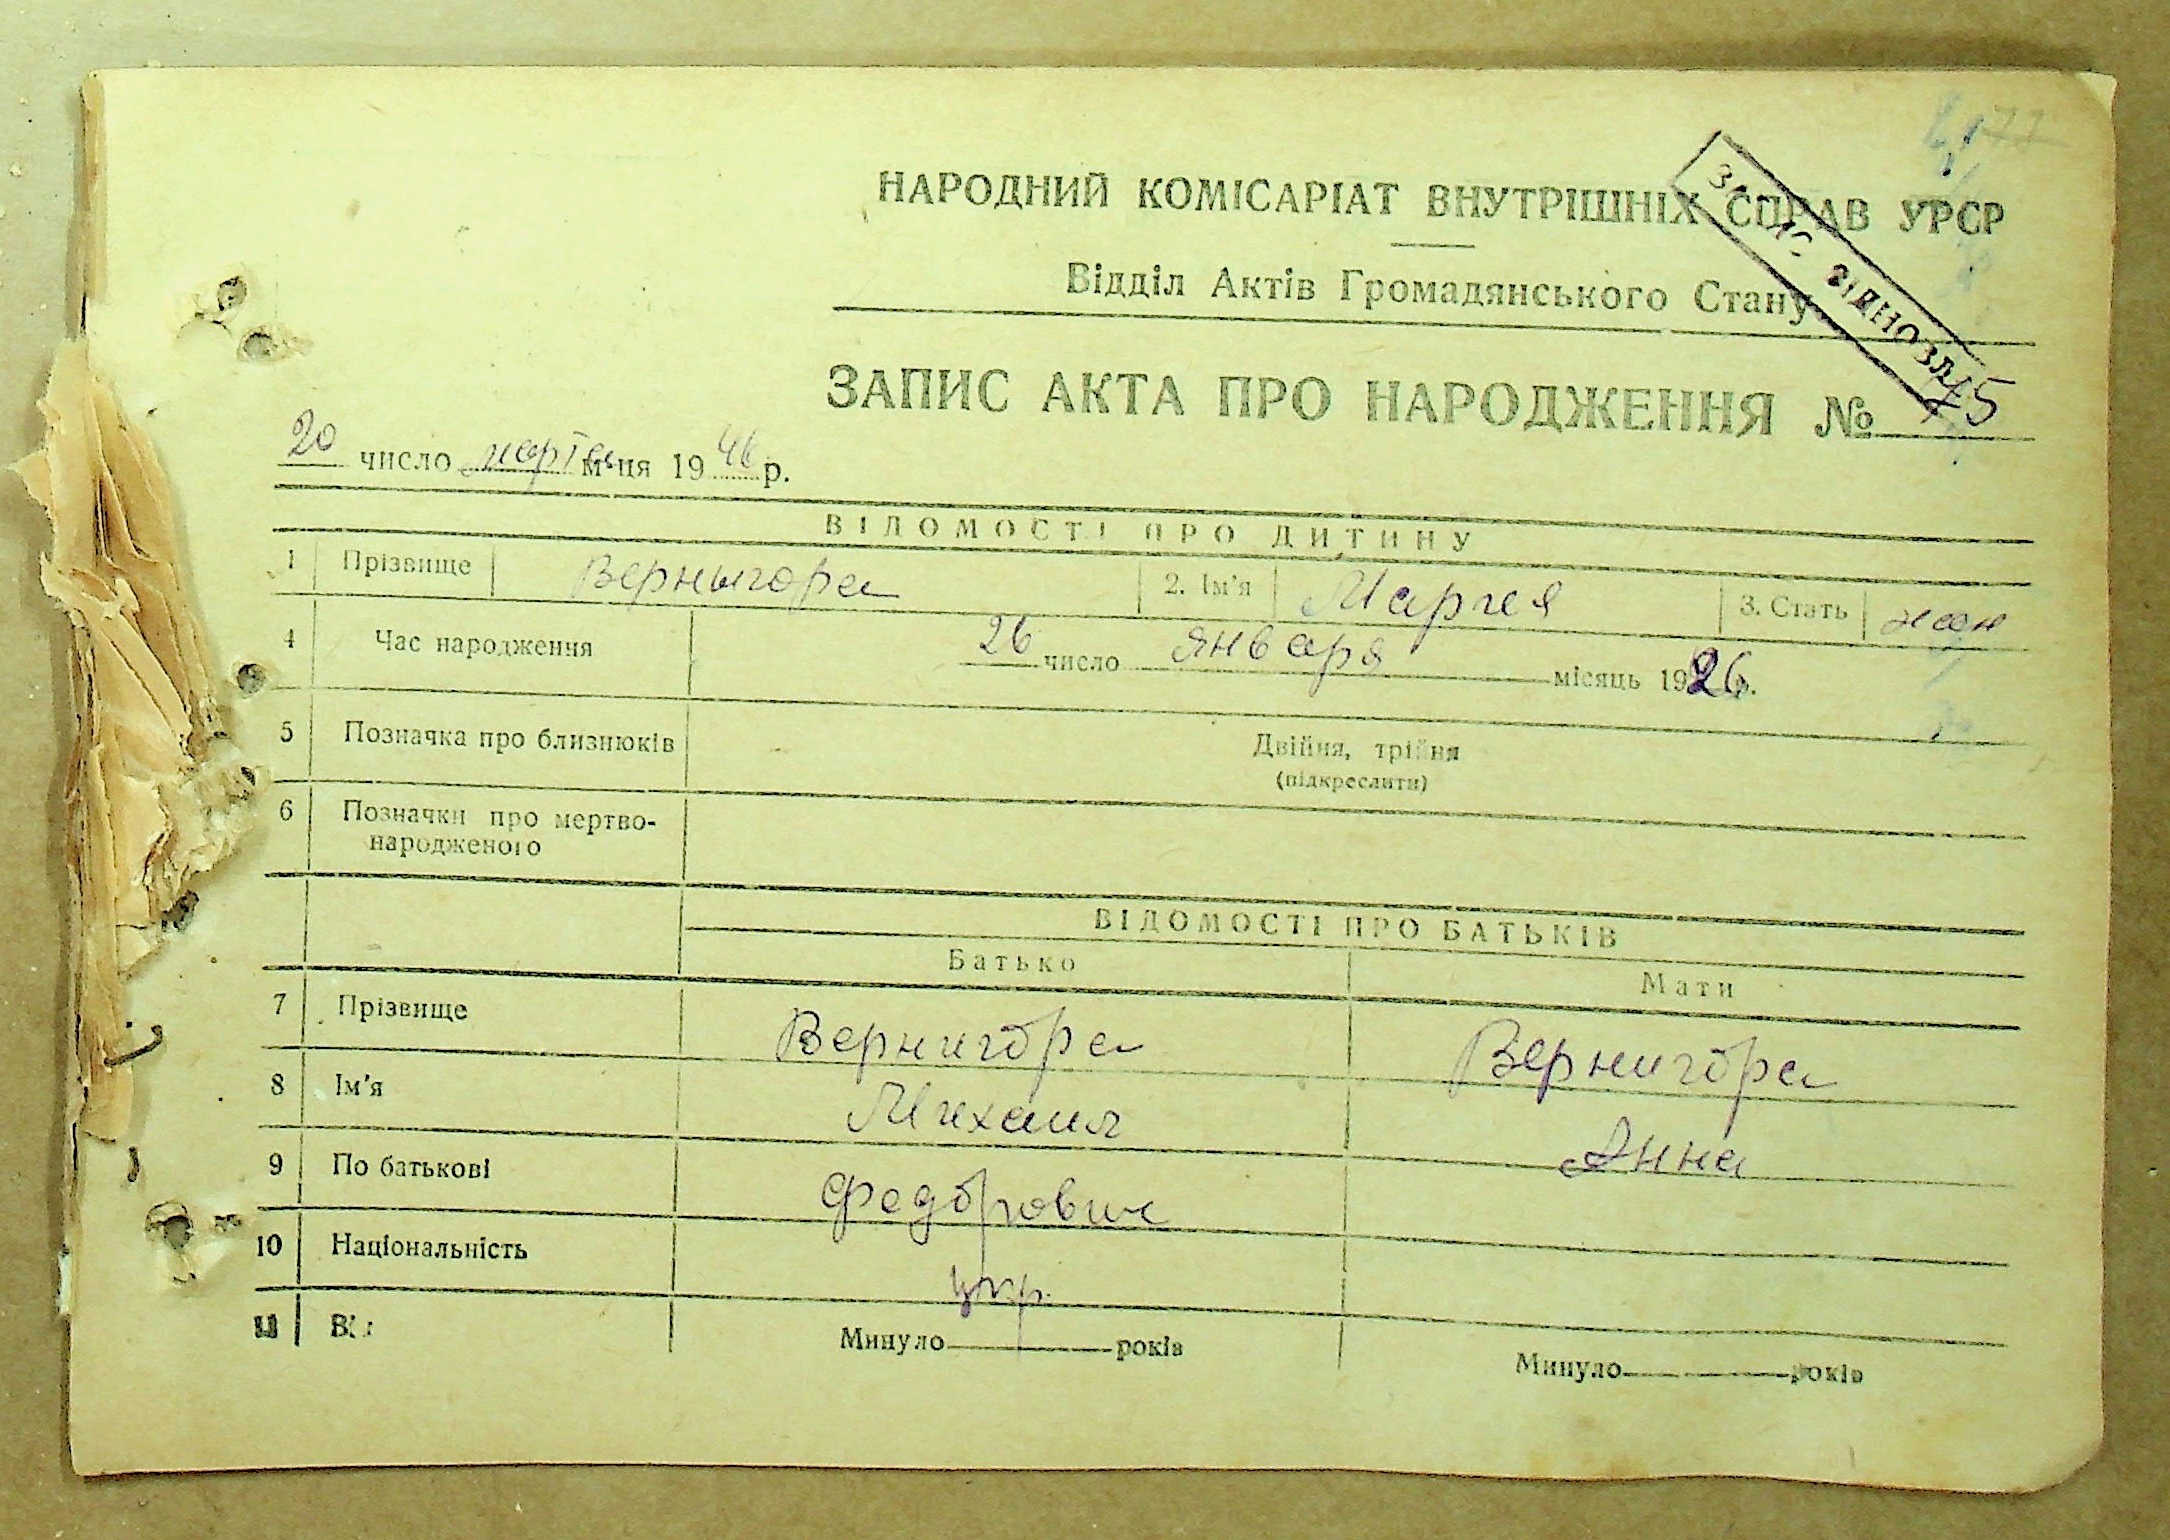 НАРОДНИЙ КОМІСАРІАТ ВНУТРІШНІХ СПРАВ УРСР
Відділ Актів Громадянського Стану
ЗАПИС ВІДНОВЛ
ЗАПИС АКТА ПРО НАРОДЖЕННЯ №
20 число марта м-ця 1946 р.
ВІДОМОСТІ ПРО ДИТИНУ
1 Прізвище Вернигора 2. Ім'я Мария 3. Стать жен
4 Час народження 26 число января місяць 1926 р.
5 Позначка про близнюків Двійня, трійня
(підкреслити)
6 Позначки про мертво-
народженого
ВІДОМОСТІ ПРО БАТЬКІВ
Батько Мати
7 Прізвище Вернигора Вернигора
8 Ім'я Михаил Анна
9 По батькові Федорович
10 Національність укр.
11 Минуло років Минуло років